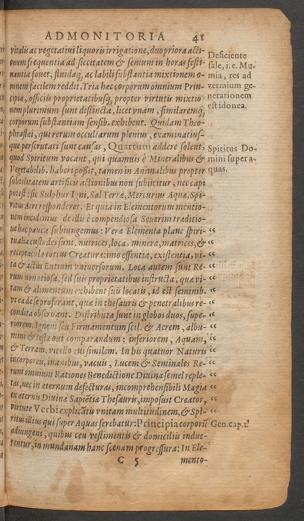 ADMONITORIA 41
vitalis ac vegetativi liquoris irrigatione, duo priora acti-
onum frequentia ad siccitatem & senium in horas festi-
nantia fovet, fluidaq, ac labili substantia mixtionem o-
mnem facilem reddit. Tria hec corporum omnium Prin-
cipia, officiis proprietatibusq, propter virtutis mixtio-
nem plurimum sunt distincta, licet unam, similaremq,
corporum substantiam sensib. exhibeant. Quidam Theo-
phrasti, qui rerum occultarum plenius, examinatius-
que perscrutati sunt causas, Quartum addere solent,
quod Spiritum vocant, qui quamvis è Mineralibus &
Vegetabilib. haberi possit, tamen in Animalibus propter
subtilitatem artificis actionibus non subiicitur, nec capi
potest: sic Sulphur Igni, Sal Terræ, Mercurius Aquæ, Spi-
ritus Aeri respondere. Et quia in Elementorum mentio-
nem incidimus de illis è compendiosa Severini traditio-
ne hec pauca subiungemus: Vera Elementa plane spiri-
tualia custodes sunt, nutrices, loca, mineræ, matrices, &
receptacula totius Creaturæ: imo essentia, existentia, vi-
ta & actus Entium universorum. Loca autem sunt Re-
rum non otiosa, sed suis proprietatibus instructa, quæ vi-
tam & alimentum exhibent suis locatis, id est seminib.
Distributa sunt in globos duos, supe-
riorem, Ignem seu Firmamentum scil. & Aerem, albu-
inferiorem, Aquam,
& Terram, vitello ovi similem. In his quatuor Naturis
incorporeis, inanibus, vacuis, Lucem & Seminales Re-
rum omnium Rationes Benedictione Divina semel reple-
tas, nec in æternum defecturas, incomprehensibili Magia
ex æternis Divinæ Sapiẽtiæ Thesauris, imposuit Creator,
Virtute Verbi explicãtis vnitam multitudinem, & Spi-
ritus illius qui super Aquas ferebatur: Principia corporũ
adiungens, quibus ceu vestimentis & domiciliis indue-
rentur, in mundanam hanc scenam progressura: In Ele-
C 5 mento-
Deficiente
sale, i. e. Mu-
mia, res ad
vermium ge-
nerationem
est idonea.
Spiritus Do-
mini super a-
quas.
Gen. cap. 1.